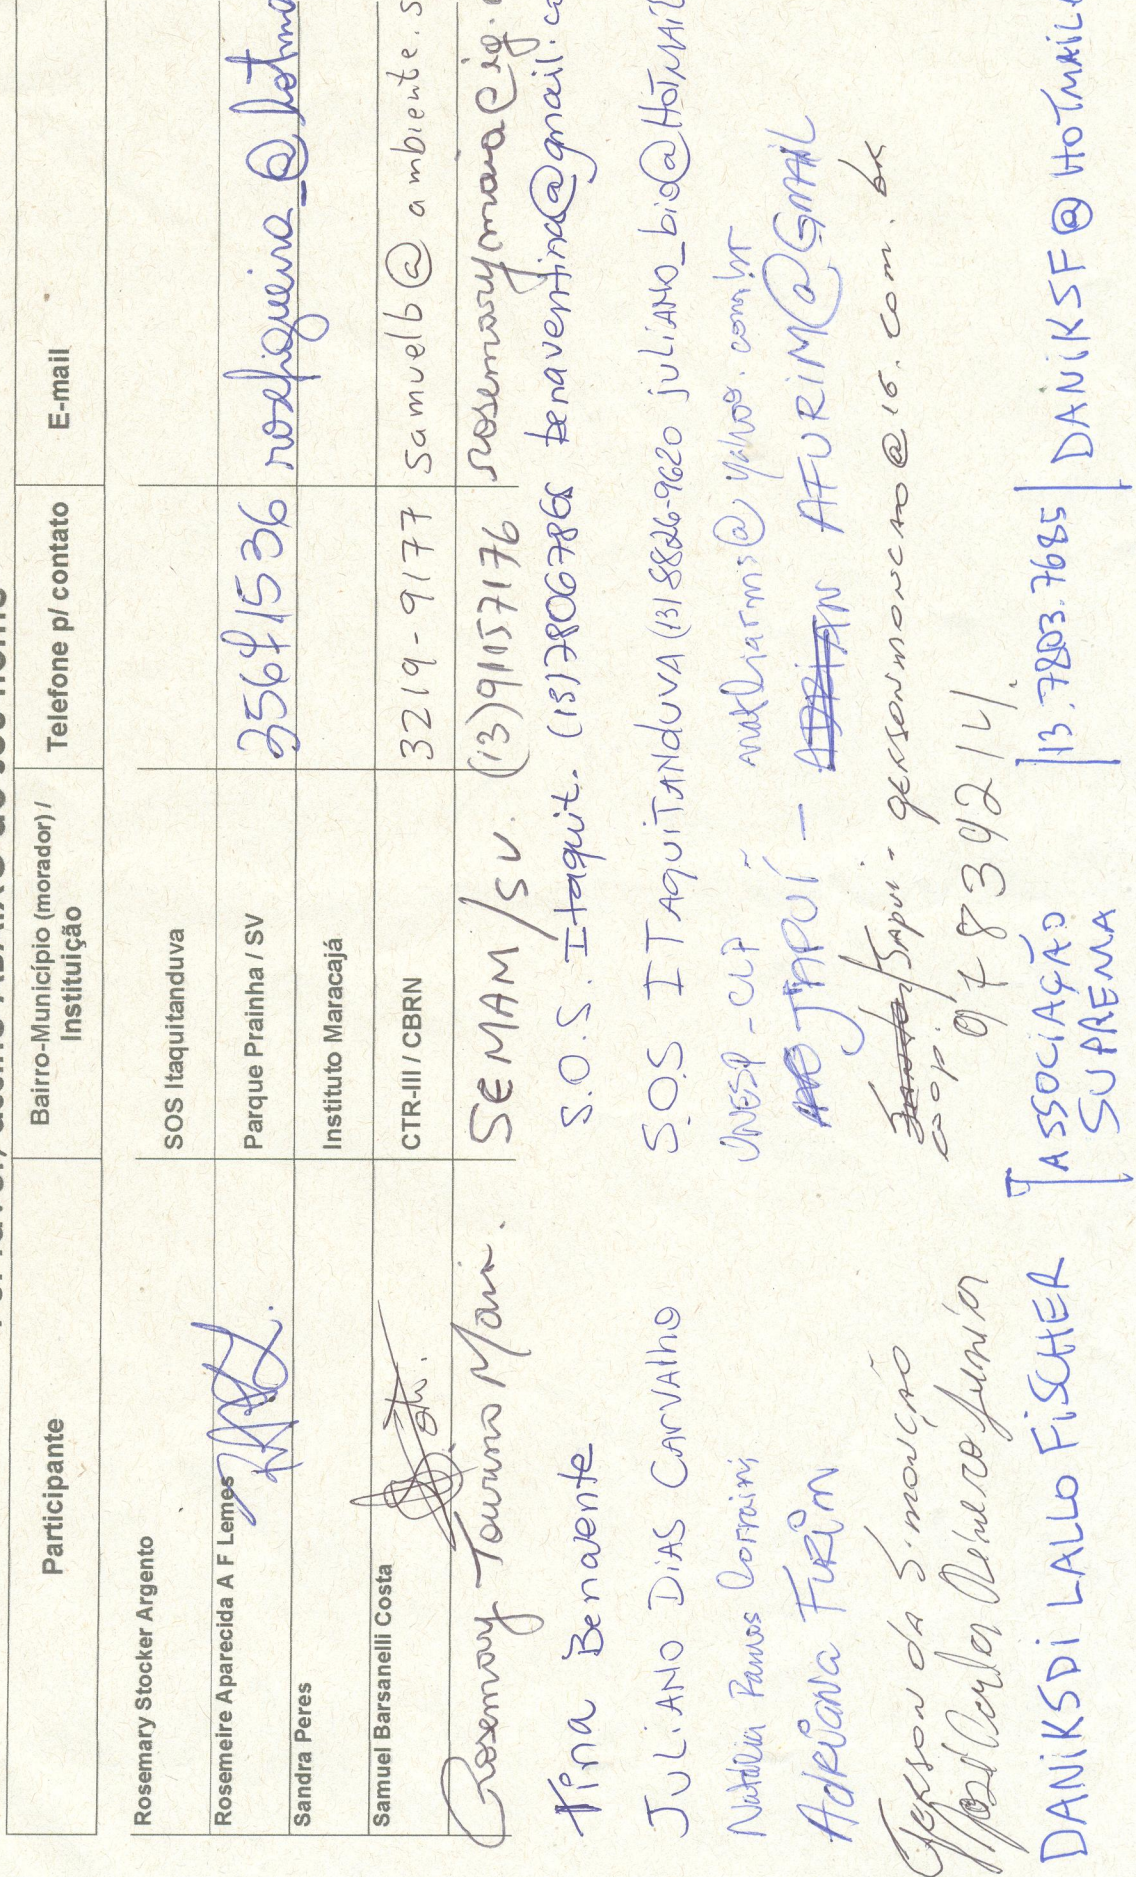 Participante Bairro-Município (morador) / Instituição Telefone p/ contato E-mail
Rosemary Stocker Argento SOS Itaquitanduva
Rosemeire Aparecida A F Lemes Parque Prainha / SV 35671536 rosefigueira_@hotma
Sandra Peres Instituto Maracajá
Samuel Barsanelli Costa CTR-III / CBRN 3219-9177 samuelb@ambiente.s
Rosemary Tourino Maia. SEMAM/SV. (13)91157176 rosemarymaia@ig.
Tina Benavente S.O.S. Itaquit. (13) benaventina@gmail.c
JULIANO DIAS CARVALHO S.O.S ITAQUITANDUVA (13) 8826-9620 juLiANO_bio@HOTMAIL
Natália Ramos Corraini UNESP-CLP @yahoo.com.br
ADRIANA FURIM JAPUÍ - AFURIM@GMAIL
Gerson da S. monção Japui - gersonmoncao@ig.com.br
José Carlos Júnior coop. 97839214.
DANIKSDI LALLO FISCHER ASSOCIAÇÃO 13.7803.7685 DANIKSF@HOTMAIL
SUPREMA